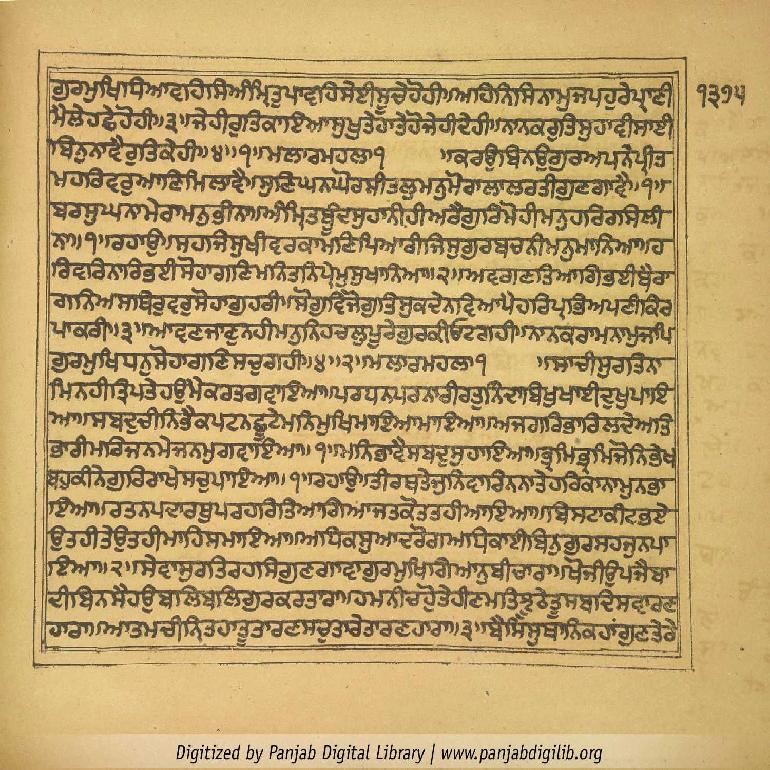 ੧੩੧੫
ਗੁਰਮੁਖਿਧਿਆਵਹਿਸਿਅੰਮ੍ਰਿਤੁਪਾਵਹਿਸੇਈਸੂਚੇਹੋਹੀ॥ਅਹਿਨਿਸਿਨਾਮੁਜਪਹੁਰੇਪ੍ਰਾਣੀ
ਮੈਲੇਹਛੇਹੋਹੀ॥੩॥ਜੇਹੀਰੁਤਿਕਾਇਆਸੁਖੁਤੇਹਾਤੇਹੋਜੇਹੀਦੇਹੀ॥ਨਾਨਕਰੁਤਿਸੁਹਾਵੀਸਾਈ
ਬਿਨੁਨਾਵੈਰੁਤਿਕੇਹੀ॥੪॥੧॥ਮਲਾਰਮਹਲਾ੧ ॥ਕਰਉਬਿਨਉਗੁਰਅਪਨੇਪ੍ਰੀਤ
ਮਹਰਿਵਰੁਆਣਿਮਿਲਾਵੈ॥ਸੁਣਿਘਨਘੋਰਸੀਤਲੁਮਨੁਮੋਰਾਲਾਲਰਤੀਗੁਣਗਾਵੈ॥੧॥
ਬਰਸੁਘਨਾਮੇਰਾਮਨੁਭੀਨਾ॥ਅੰਮ੍ਰਿਤਬੂੰਦਸੁਹਾਨੀਹੀਅਰੈਗੁਰਿਮੋਹੀਮਨੁਹਰਿਰਸਿਲੀ
ਨਾ॥੧॥ਰਹਾਉ॥ਸਹਜਿਸੁਖੀਵਰਕਾਮਣਿਪਿਆਰੀਜਿਸੁਗੁਰਬਚਨੀਮਨੁਮਾਨਿਆ॥ਹ
ਰਿਵਰਿਨਾਰਿਭਈਸੋਹਾਗਣਿਮਨਿਤਨਿਪ੍ਰੇਮੁਸੁਖਾਨਿਆ॥੨॥ਅਵਗਣਤਿਆਗਿਭਈਬੈਰਾ
ਗਨਿਅਸਥਿਰੁਵਰੁਸੋਹਾਗੁਹਰੀ॥ਸੋਗੁਵਿਜੋਗੁਤਿਸੁਕਦੇਨਵਿਆਪੈਹਰਿਪ੍ਰਭਿਅਪਣੀਕਿਰ
ਪਾਕਰੀ॥੩॥ਆਵਣਜਾਣੁਨਹੀਮਨੁਨਿਹਚਲੁਪੂਰੇਗੁਰਕੀਓਟਗਹੀ॥ਨਾਨਕਰਾਮਨਾਮੁਜਪਿ
ਗੁਰਮੁਖਿਧਨੁਸੋਹਾਗਣਿਸਚੁਗਹੀ॥੪॥੨॥ਮਲਾਰਮਹਲਾ੧ ॥ਸਾਚੀਸੁਰਤਿਨਾ
ਮਿਨਹੀਤ੍ਰਿਪਤੇਹਉਮੈਕਰਤਗਵਾਇਆ॥ਪਰਧਨਪਰਨਾਰੀਰਤੁਨਿੰਦਾਬਿਖੁਖਾਈਦੁਖੁਪਾਇ
ਆ॥ਸਬਦੁਚੀਨਿਭੈਕਪਟਨਛੂਟੇਮਨਿਮੁਖਿਮਾਇਆਮਾਇਆ॥ਅਜਗਰਿਭਾਰਿਲਦੇਅਤਿ
ਭਾਰੀਮਰਿਜਨਮੇਜਨਮੁਗਵਾਇਆ॥੧॥ਮਨਿਭਾਵੈਸਬਦੁਸੁਹਾਇਆ॥ਭ੍ਰਮਿਭ੍ਰਮਿਜੋਨਿਭੇਖ
ਬਹੁਕੀਨੇਗੁਰਿਰਾਖੇਸਚੁਪਾਇਆ॥੧॥ਰਹਾਉ॥ਤੀਰਥਤੇਜੁਨਿਵਾਰਿਨਨਾਤੇਹਰਿਕਾਨਾਮੁਨਭਾ
ਇਆ॥ਰਤਨਪਦਾਰਥੁਪਰਹਰਿਤਿਆਗਿਆਜਤਕੋਤਤਹੀਆਇਆ॥ਬਿਸਟਾਕੀਟਭਏ
ਉਤਹੀਤੇਉਤਹੀਮਾਹਿਸਮਾਇਆ॥ਅਧਿਕਸੁਆਦਰੋਗਅਧਿਕਾਈਬਿਨੁਗੁਰਸਹਜੁਨਪਾ
ਇਆ॥੨॥ਸੇਵਾਸੁਰਤਿਰਹਸਿਗੁਣਗਾਵਾਗੁਰਮੁਖਿਗਿਆਨੁਬੀਚਾਰਾ॥ਖੋਜੀਉਪਜੈਬਾ
ਦੀਬਿਨਸੈਹਉਬਲਿਬਲਿਗੁਰਕਰਤਾਰਾ॥ਹਮਨੀਚਹੋੁਤੇਹੀਣਮਤਿਝੂਠੇਤੂਸਬਦਿਸਵਾਰਣ
ਹਾਰਾ॥ਆਤਮਚੀਨਿਤਹਾਤੂਤਾਰਣਸਚੁਤਾਰੇਤਾਰਣਹਾਰਾ॥੩॥ਬੈਸਿਸੁਥਾਨਿਕਹਾਂਗੁਣਤੇਰੇ
Digitized by Panjab Digital Library | www.panjabdigilib.org